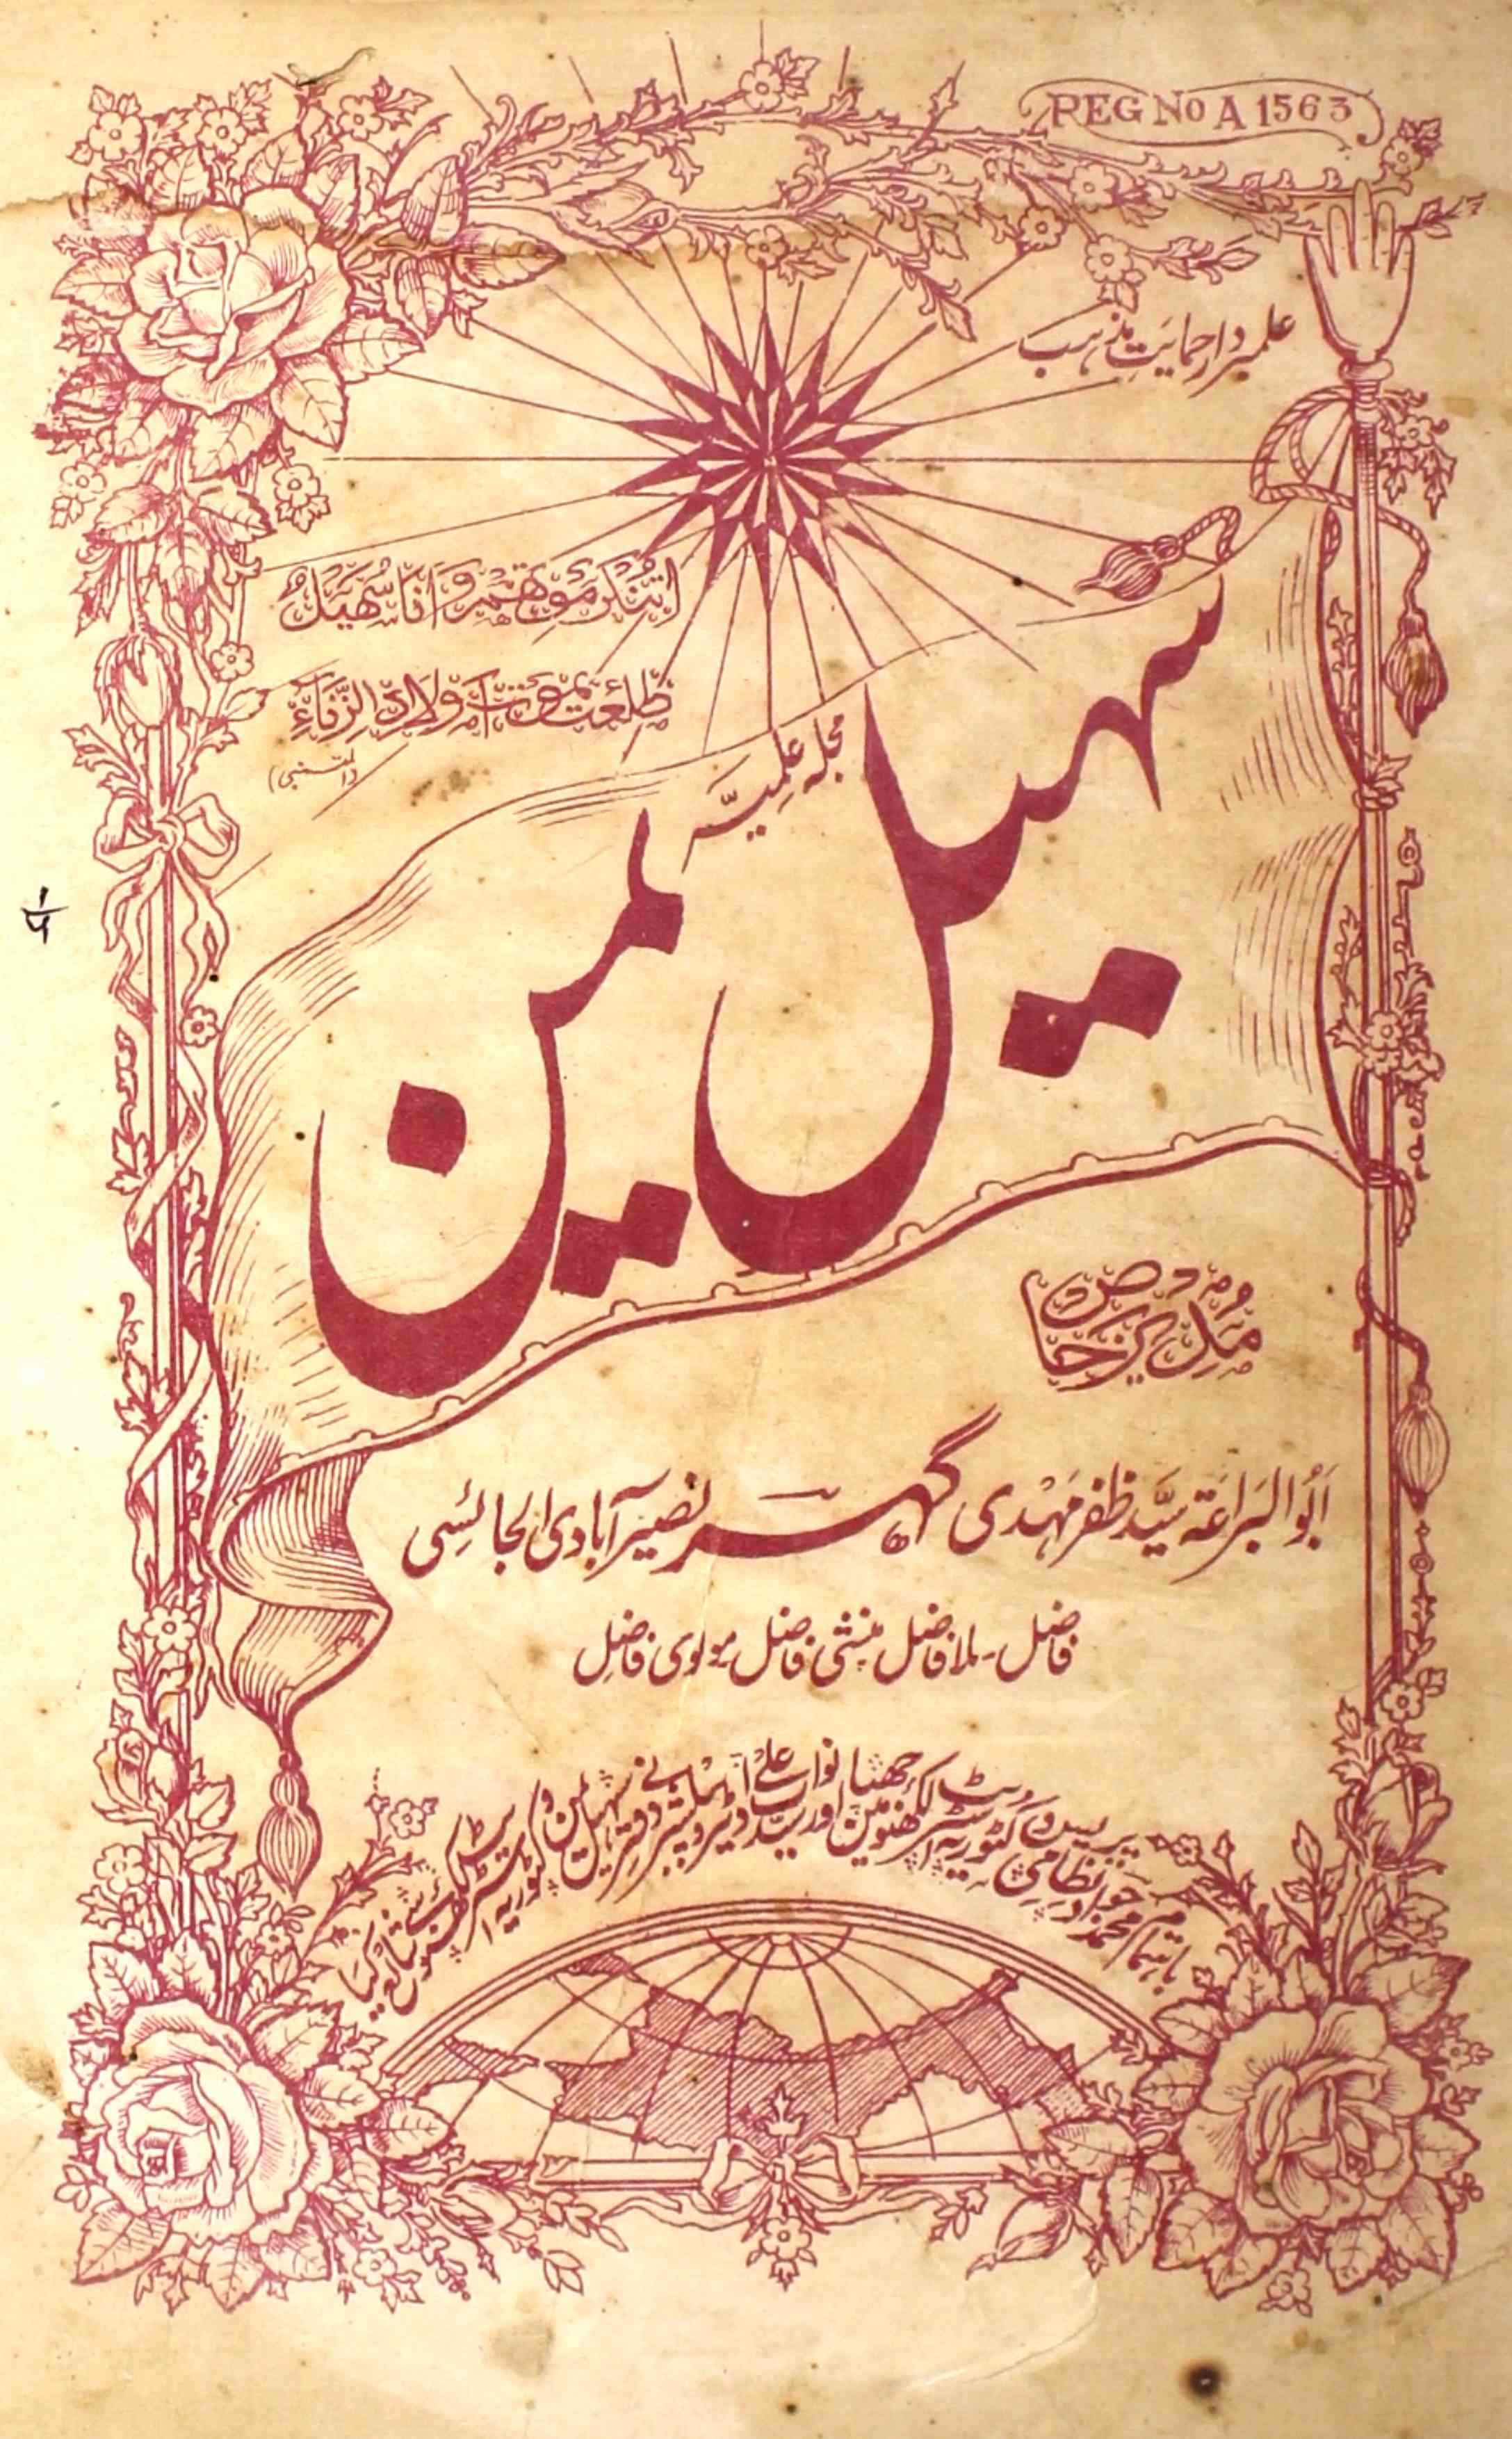 REG NO A 1563
علمبردار حمایت مذہب
اَتُنْكِرُ مَوْتَهُمْ وَاَنَا سُهَيْلٌ
طَلَعْتُ بِمَوْتِ اَوْلَادِ الزِّنَاءِ
(المتنبی)
مجلہ علمیہ
سہیل یمن
مدیر خاص
اَبُو البَراعَۃ سیّد ظفر مَہْدی گہر نصیر آبادی الجائسی
فاضل۔ ملا فاضل منشی فاضل مولوی فاضل
باہتمام محمد جواد نظامی پریس وکٹوریہ اسٹریٹ لکھنؤ میں چھپا اور سید نواب علی ایڈیٹر و پبلشر نے دفتر سہیل یمن وکٹوریہ اسٹریٹ لکھنؤ سے شائع کیا